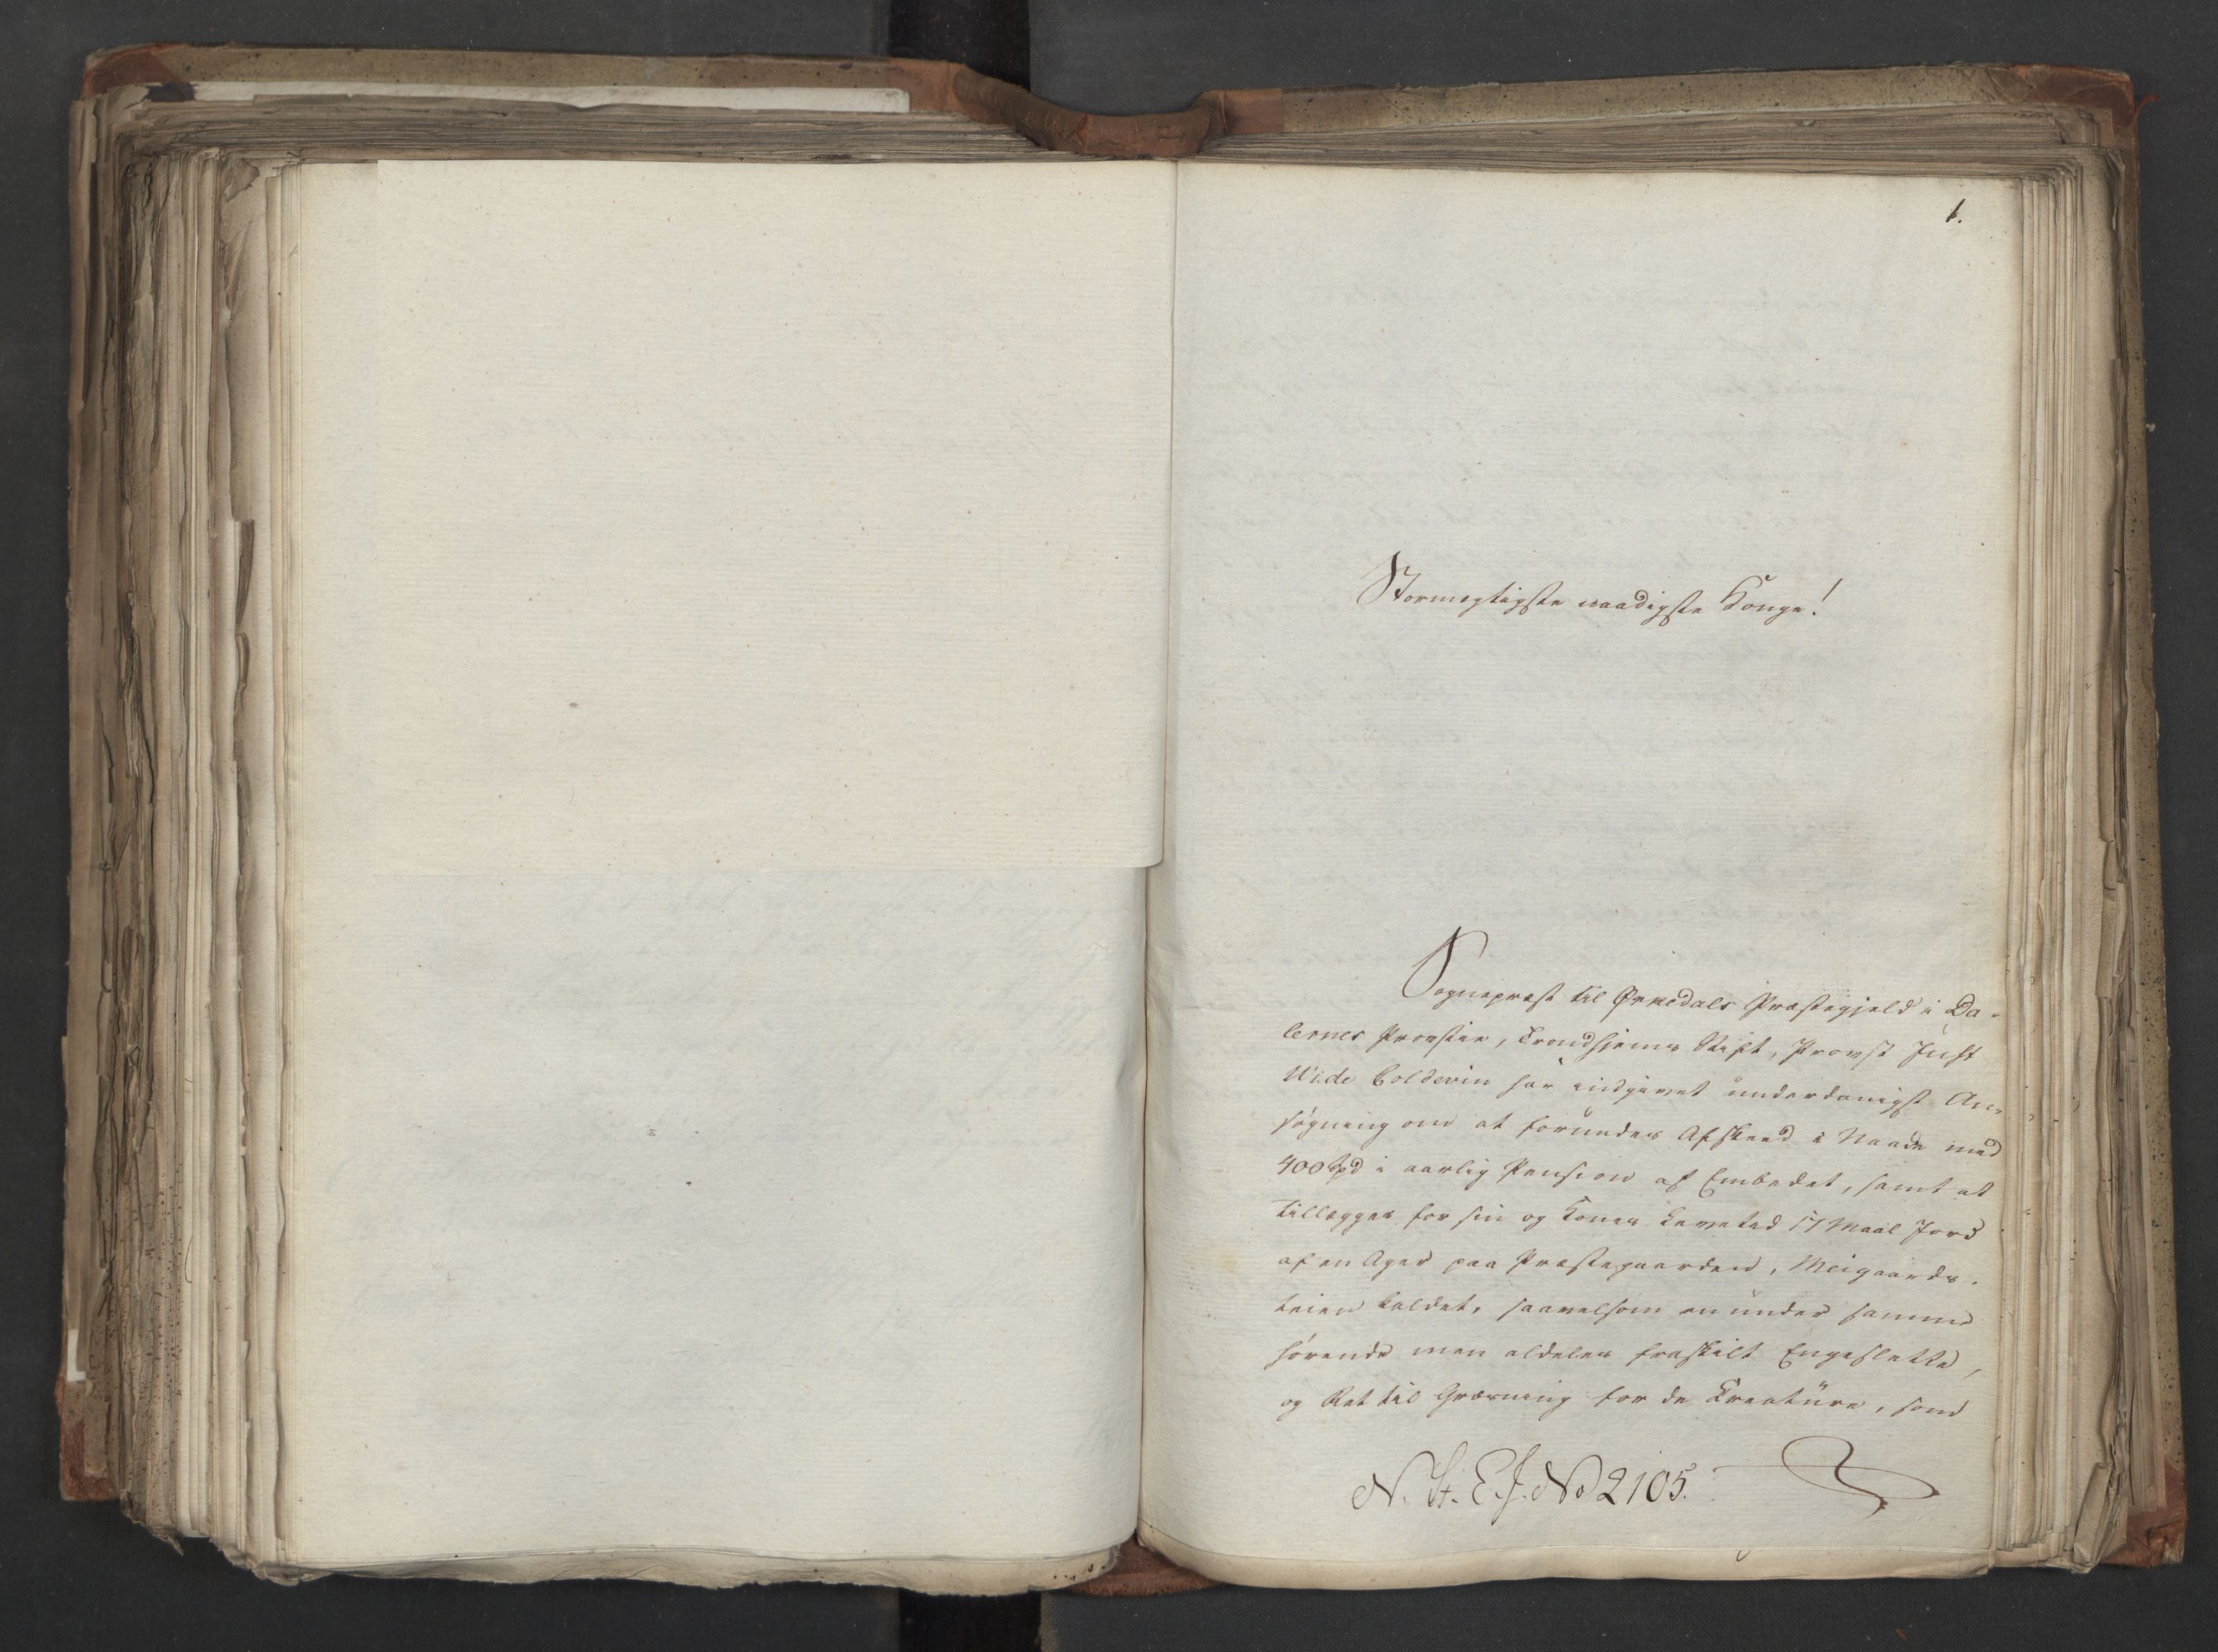 1.
Stormægtigste naadigste Konge!
Sognepræst til Ørkedals Præstegjeld i Da-
lernes Provstie, Trondhjems Stift, Provst Just
Wide Coldevin har indgivet underdanigst An-
søgning om at forundes Afskeed i Naade med
400 Spd i aarlig Pension af Embedet, samt at
tillægges for sin og Kones Levetid 17 Maal Jord
af en Ager paa Præstegaarden, Meigaards-
leien kaldet, saavelsom en under samme
hørende men aldeles fraskilt Engeslette,
og Ret til Græsning for de Kreature, som
N. St. E. J. No 2105.